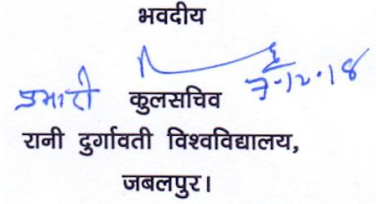 भवदीय
7-12-18
प्रभारी कुलसचिव
रानी दुर्गावती विश्वविद्यालय,
जबलपुर।